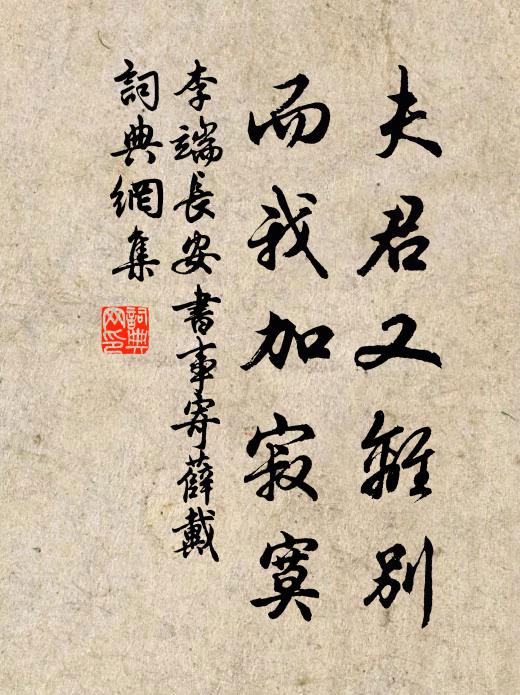 夫君又離別
而我加寂寞
李端長安書事寄薛戴
詞典網集
詞典網印